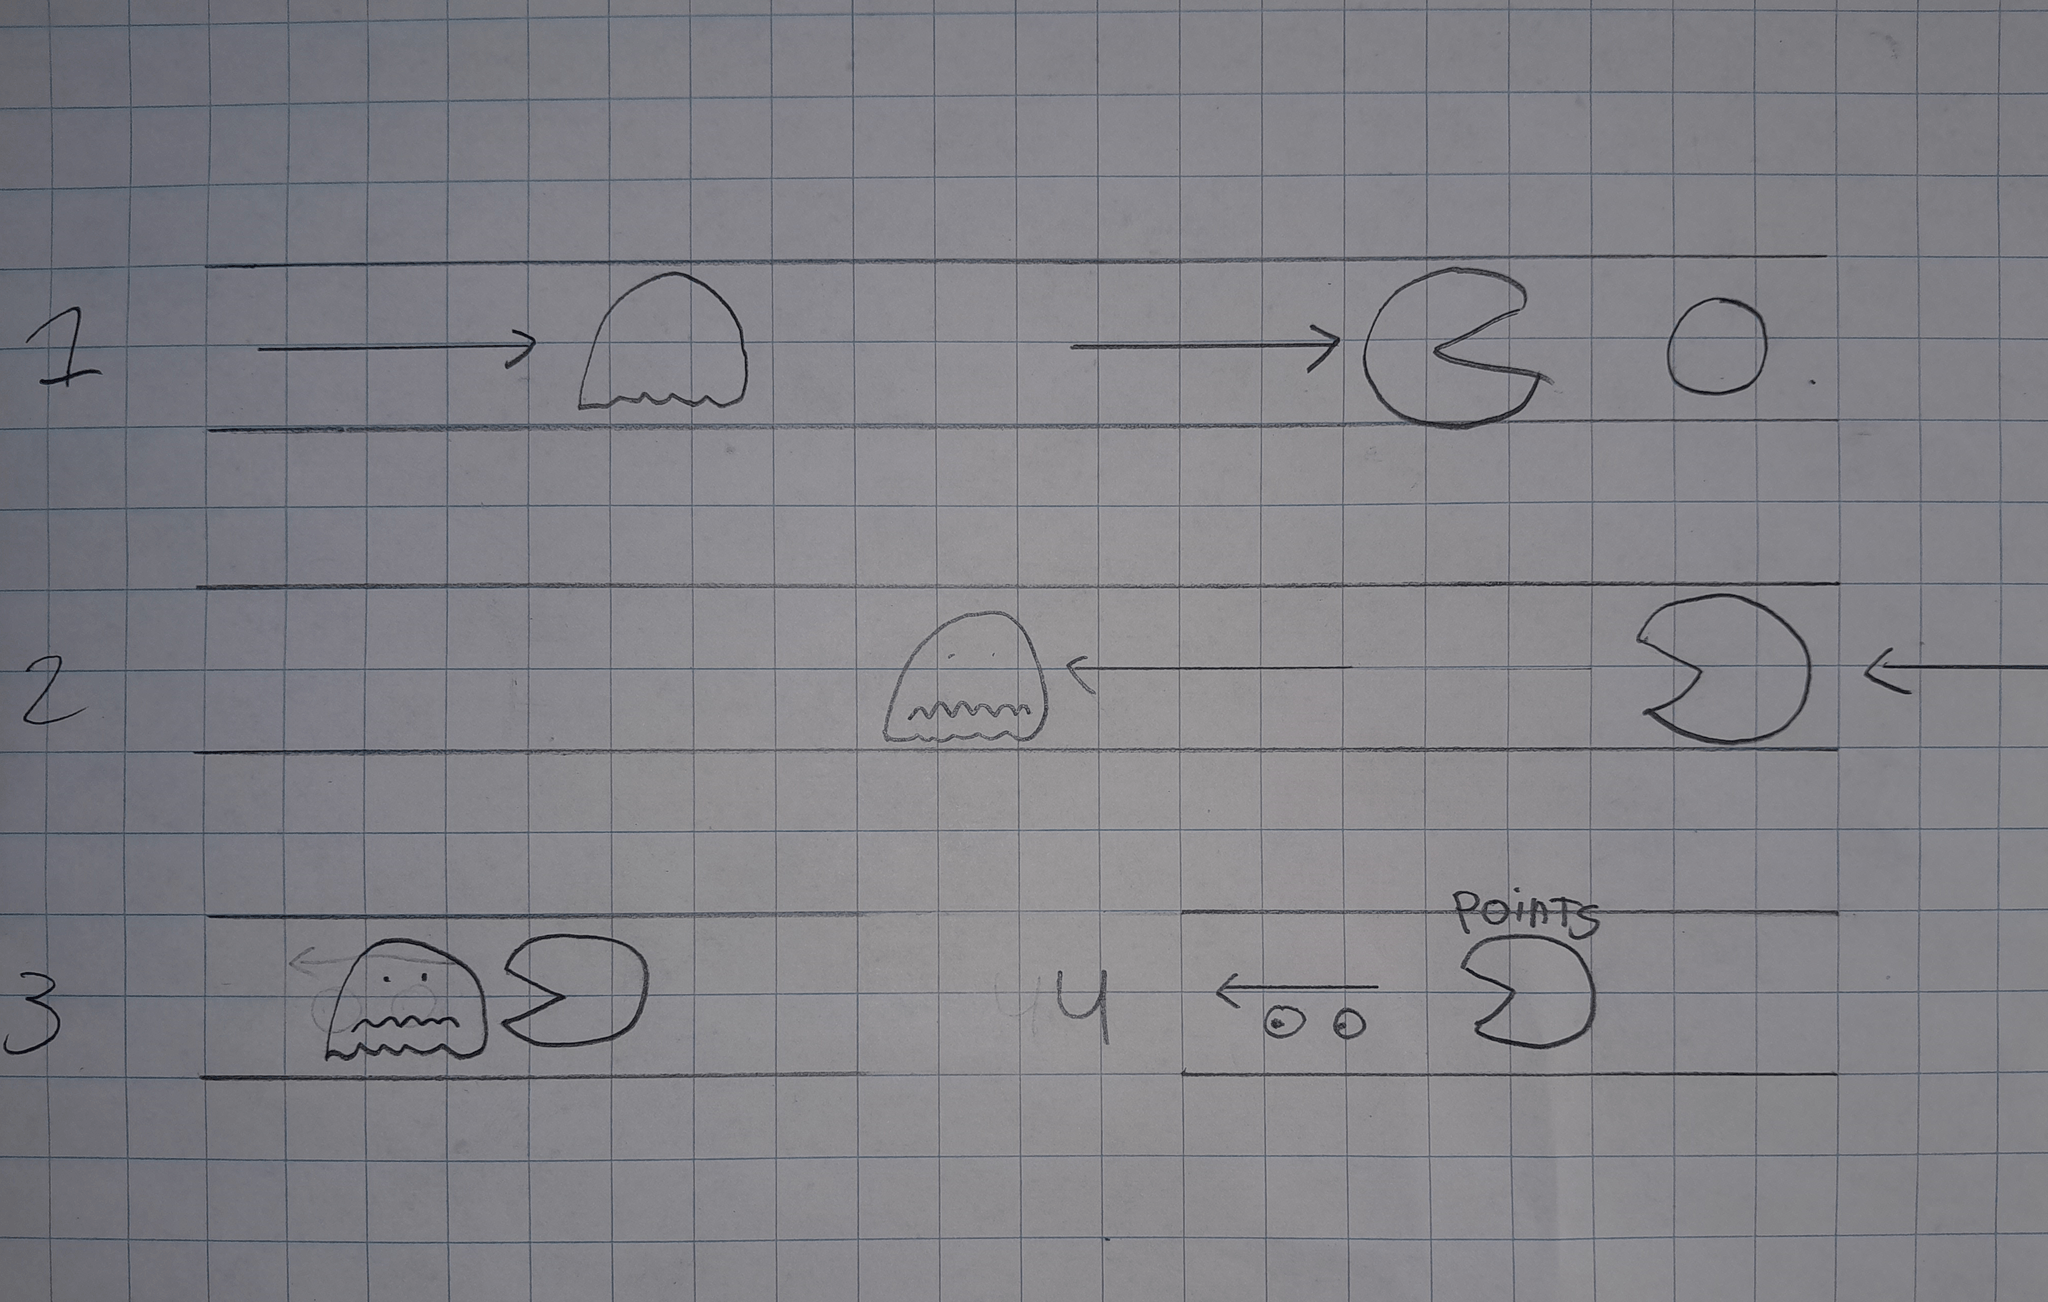 1
2
3
4
POINTS